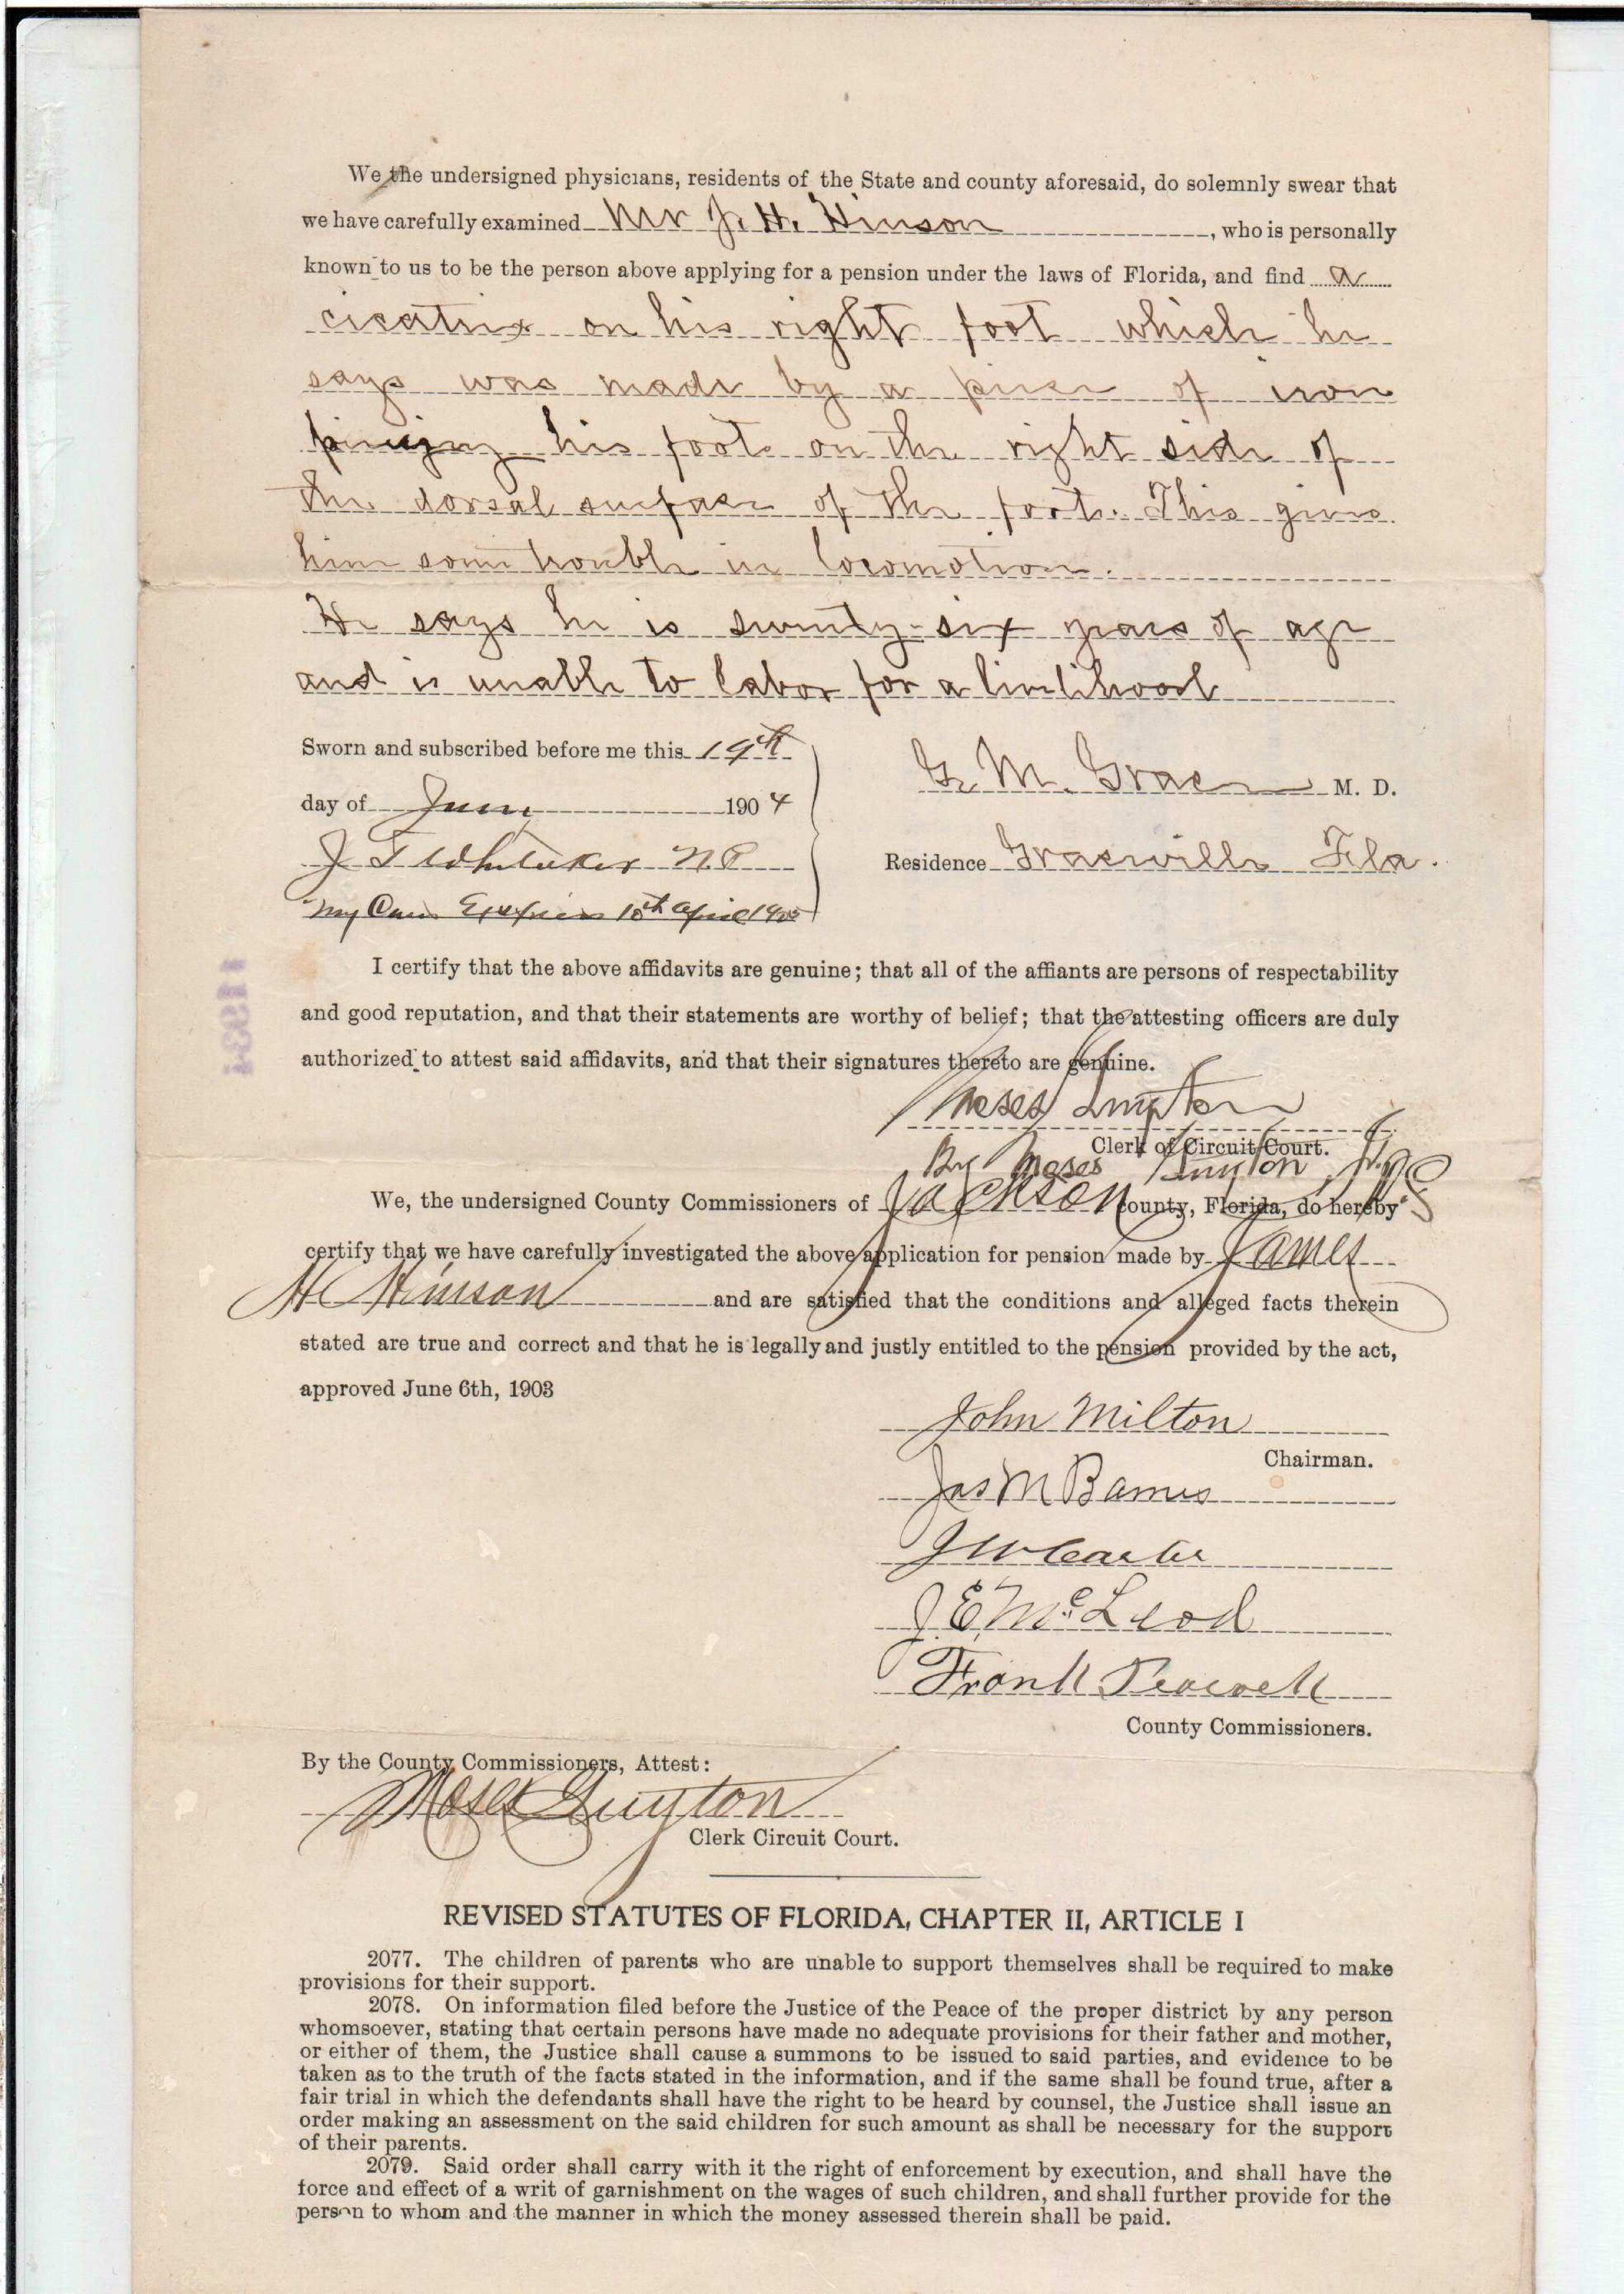 We the undersigned physicians, residents of the State and county aforesaid, do solemnly swear that
we have carefully examined Mr J. H. Hinson, who is personally
known to us to be the person above applying for a pension under the laws of Florida, and find a
cicatrix on his right foot which he
says was made by a piece of iron
his foot on the right side of
the dorsal surface of the foot. This gives
him some trouble in locomotion.
He says he is seventy-six years of age
and is unable to labor for a livelihood
Sworn and subscribed before me this 19th
day of June 1904
J T Whitaker N.P.
My Com Expires 10th April 1905
G. M. Grace M. D.
Residence Graceville Fla.
I certify that the above affidavits are genuine; that all of the affiants are persons of respectability
and good reputation, and that their statements are worthy of belief; that the attesting officers are duly
authorized to attest said affidavits, and that their signatures thereto are genuine.
Moses Guyton
Clerk of Circuit Court.
By Moses Guyton Jr. DC
We, the undersigned County Commissioners of Jackson County, Florida, do hereby
certify that we have carefully investigated the above application for pension made by James
H Hinson and are satisfied that the conditions and alleged facts therein
stated are true and correct and that he is legally and justly entitled to the pension provided by the act,
approved June 6th, 1903
John Milton
Chairman.
Jas M Barnes
J W Carter
J. E. McLeod
Frank Peacock
County Commissioners.
By the County Commissioners, Attest:
Moses Guyton
Clerk Circuit Court.
REVISED STATUTES OF FLORIDA, CHAPTER II, ARTICLE I
2077. The children of parents who are unable to support themselves shall be required to make
provisions for their support.
2078. On information filed before the Justice of the Peace of the proper district by any person
whomsoever, stating that certain persons have made no adequate provisions for their father and mother,
or either of them, the Justice shall cause a summons to be issued to said parties, and evidence to be
taken as to the truth of the facts stated in the information, and if the same shall be found true, after a
fair trial in which the defendants shall have the right to be heard by counsel, the Justice shall issue an
order making an assessment on the said children for such amount as shall be necessary for the support
of their parents.
2079. Said order shall carry with it the right of enforcement by execution, and shall have the
force and effect of a writ of garnishment on the wages of such children, and shall further provide for the
person to whom and the manner in which the money assessed therein shall be paid.